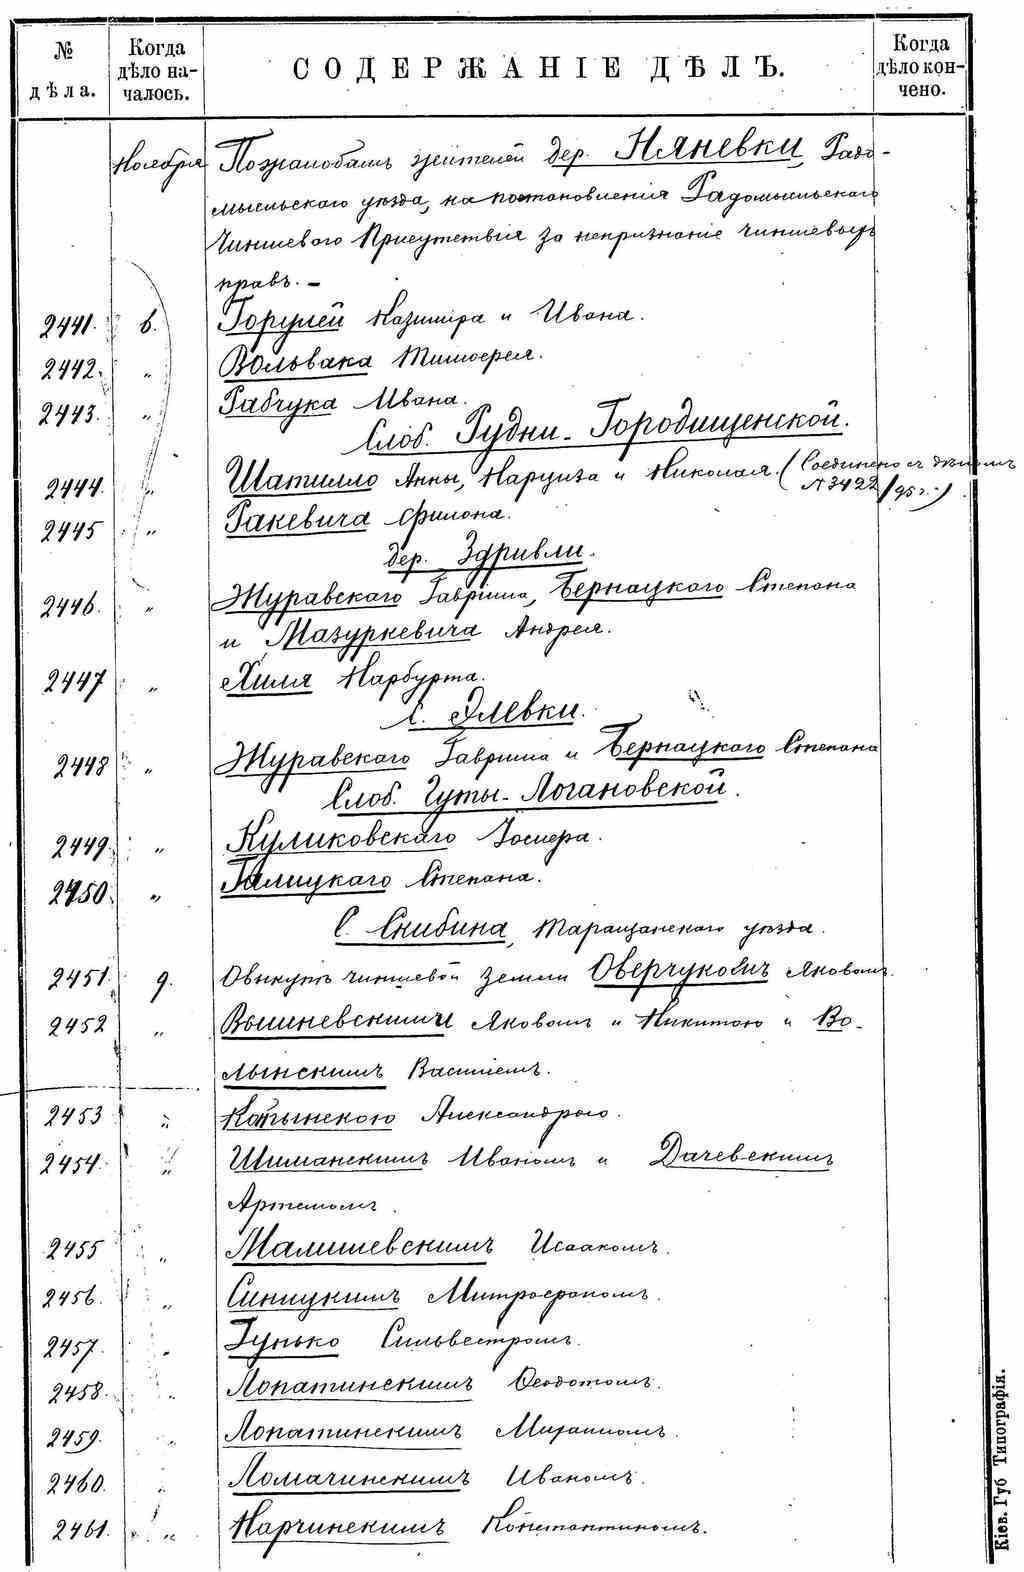 № дѣла.
Когда дѣло началось.
СОДЕРЖАНІЕ ДѢЛЪ.
Когда дѣло кончено.
Ноября По жалобамъ жителей дер. Няневки, Радо-
мысльскаго уѣзда, на постановленія Радомысльскаго
Чиншевого Присутствія за непризнаніе чиншевыхъ
правъ. –
2441. 6. Горулей Казиміра и Ивана.
2442. „ Вольвака Тимофея.
2443. „ Рабчука Ивана.
Слоб. Рудни-Городищенской.
2444. „ Шатилло Анны, Нарциза и Николая. (Соединено съ дѣломъ
№ 3422/95 г.)
2445 „ Ракевича Филона.
дер. Здривли.
2446. „ Журавскаго Гавріила, Бернацкого Степана
и Мазуркевича Андрея.
2447 „ Хиля Нарбурта.
с. Элевки.
2448 „ Журавскаго Гавріила и Бернацкого Степана
Слоб. Гуты-Логановской.
2449. „ Куликовскаго Іосифа.
2450. „ Галицкаго Степана.
С. Скибина, Таращанскаго уѣзда.
2451. 9. О выкупѣ чиншевой земли Оверчукомъ Яковомъ.
2452 „ Вышневскими Яковомъ и Никитою и Во-
лынскимъ Василіемъ.
2453 „ Александрою.
2454. „ Шиманскимъ Иваномъ и Дачевскимъ
Артемомъ.
2455 „ Малишевскимъ Исаакомъ.
2456. „ Синицкимъ Митрофаномъ.
2457. „ Гунько Сильвестромъ.
2458. „ Лопатинскимъ Ѳеодотомъ.
2459. „ Лопатинскимъ
2460. „ Ломачинскимъ Иваномъ.
2461. „ Нарчинскимъ Константиномъ.
Кіев. Губ Типографія.